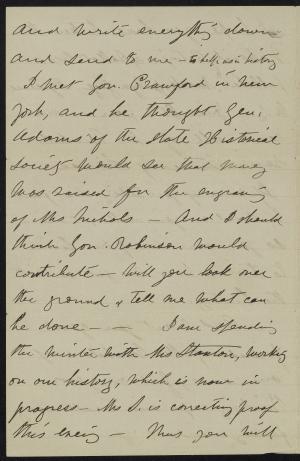 and write everything down
and send to me - to help us in history
I met Gov. Crawford in New
York, and he thought Gen.
Adams of the State Historical
Society would see that money
was raised for the engraving
of Mrs Nichols - And I should
think Gov. Robinson would
contribute - Will you look over
the ground & tell me what can
be done - - I am spending
the winter with Mrs Stanton, working
on our history, which is now in
progress - Mrs S. is correcting proof
this evening - Thus you will